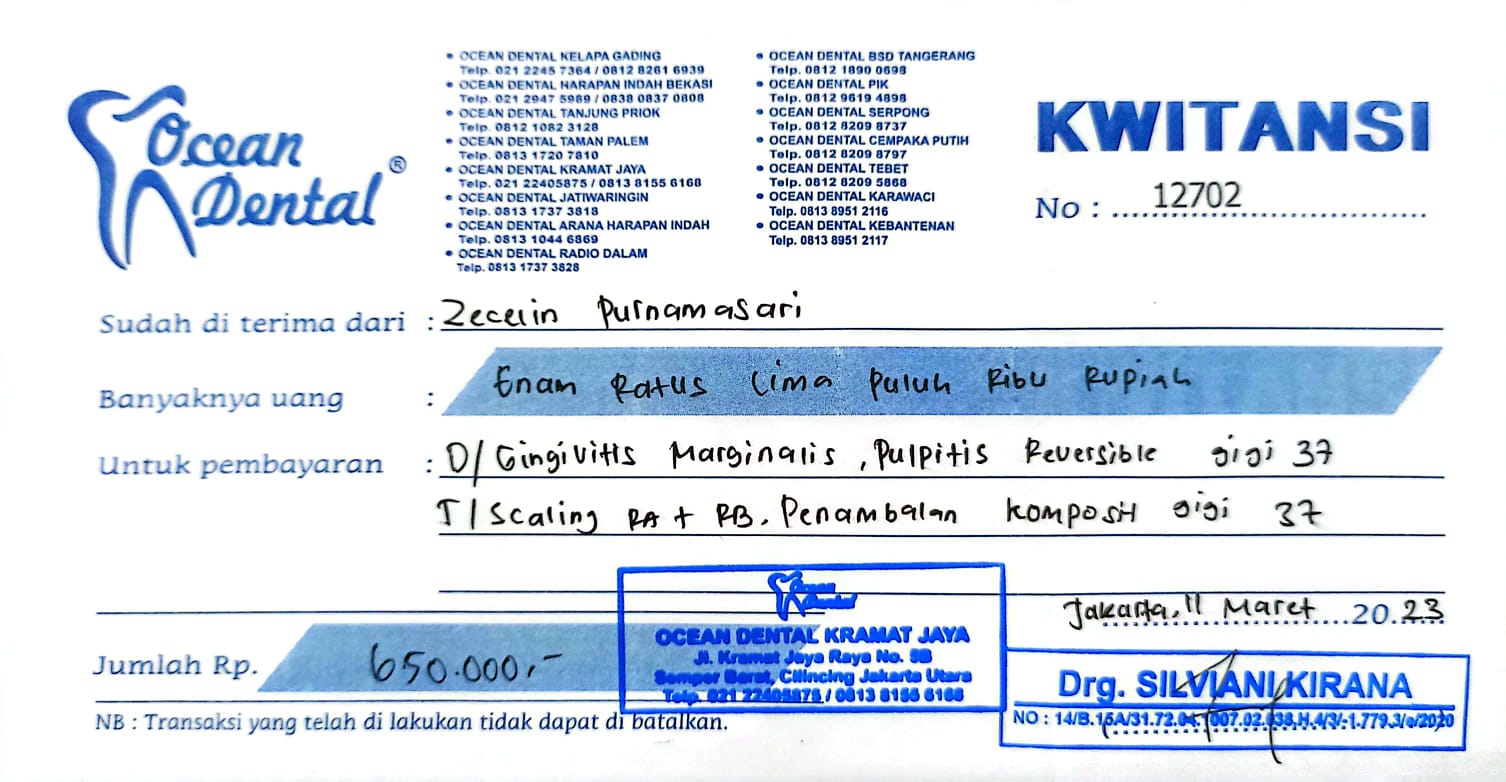 Ocean
Dental ®
• OCEAN DENTAL KELAPA GADING
Telp. 021 2245 7364 / 0812 8261 6939
• OCEAN DENTAL HARAPAN INDAH BEKASI
Telp. 021 2947 5989 / 0838 0837 0808
• OCEAN DENTAL TANJUNG PRIOK
Telp. 0812 1082 3128
• OCEAN DENTAL TAMAN PALEM
Telp. 0813 1720 7810
• OCEAN DENTAL KRAMAT JAYA
Telp. 021 22405875 / 0813 8155 6168
• OCEAN DENTAL JATIWARINGIN
Telp. 0813 1737 3818
• OCEAN DENTAL ARANA HARAPAN INDAH
Telp. 0813 1044 6869
• OCEAN DENTAL RADIO DALAM
Telp. 0813 1737 3828
• OCEAN DENTAL BSD TANGERANG
Telp. 0812 1890 0698
• OCEAN DENTAL PIK
Telp. 0812 9619 4898
• OCEAN DENTAL SERPONG
Telp. 0812 8209 8737
• OCEAN DENTAL CEMPAKA PUTIH
Telp. 0812 8209 8797
• OCEAN DENTAL TEBET
Telp. 0812 8209 5868
• OCEAN DENTAL KARAWACI
Telp. 0813 8951 2116
• OCEAN DENTAL KEBANTENAN
Telp. 0813 8951 2117
KWITANSI
No : 12702
Sudah di terima dari : Zecelin Purnamasari
Banyaknya uang : Enam Ratus Lima Puluh Ribu Rupiah
Untuk pembayaran : D/ Gingivitis Marginalis, Pulpitis Reversible gigi 37
T/ Scaling RA + RB. Penambalan Komposit gigi 37
Jakarta, 11 Maret 2023
Jumlah Rp. 650.000,-
NB : Transaksi yang telah di lakukan tidak dapat di batalkan.
Ocean
Dental
OCEAN DENTAL KRAMAT JAYA
Jl. Kramat Jaya Raya No. 5B
Semper Barat, Cilincing Jakarta Utara
Telp. 021 22405875 / 0813 8155 6168
Drg. SILVIANI KIRANA
NO : 14/B.15A/31.72.04.